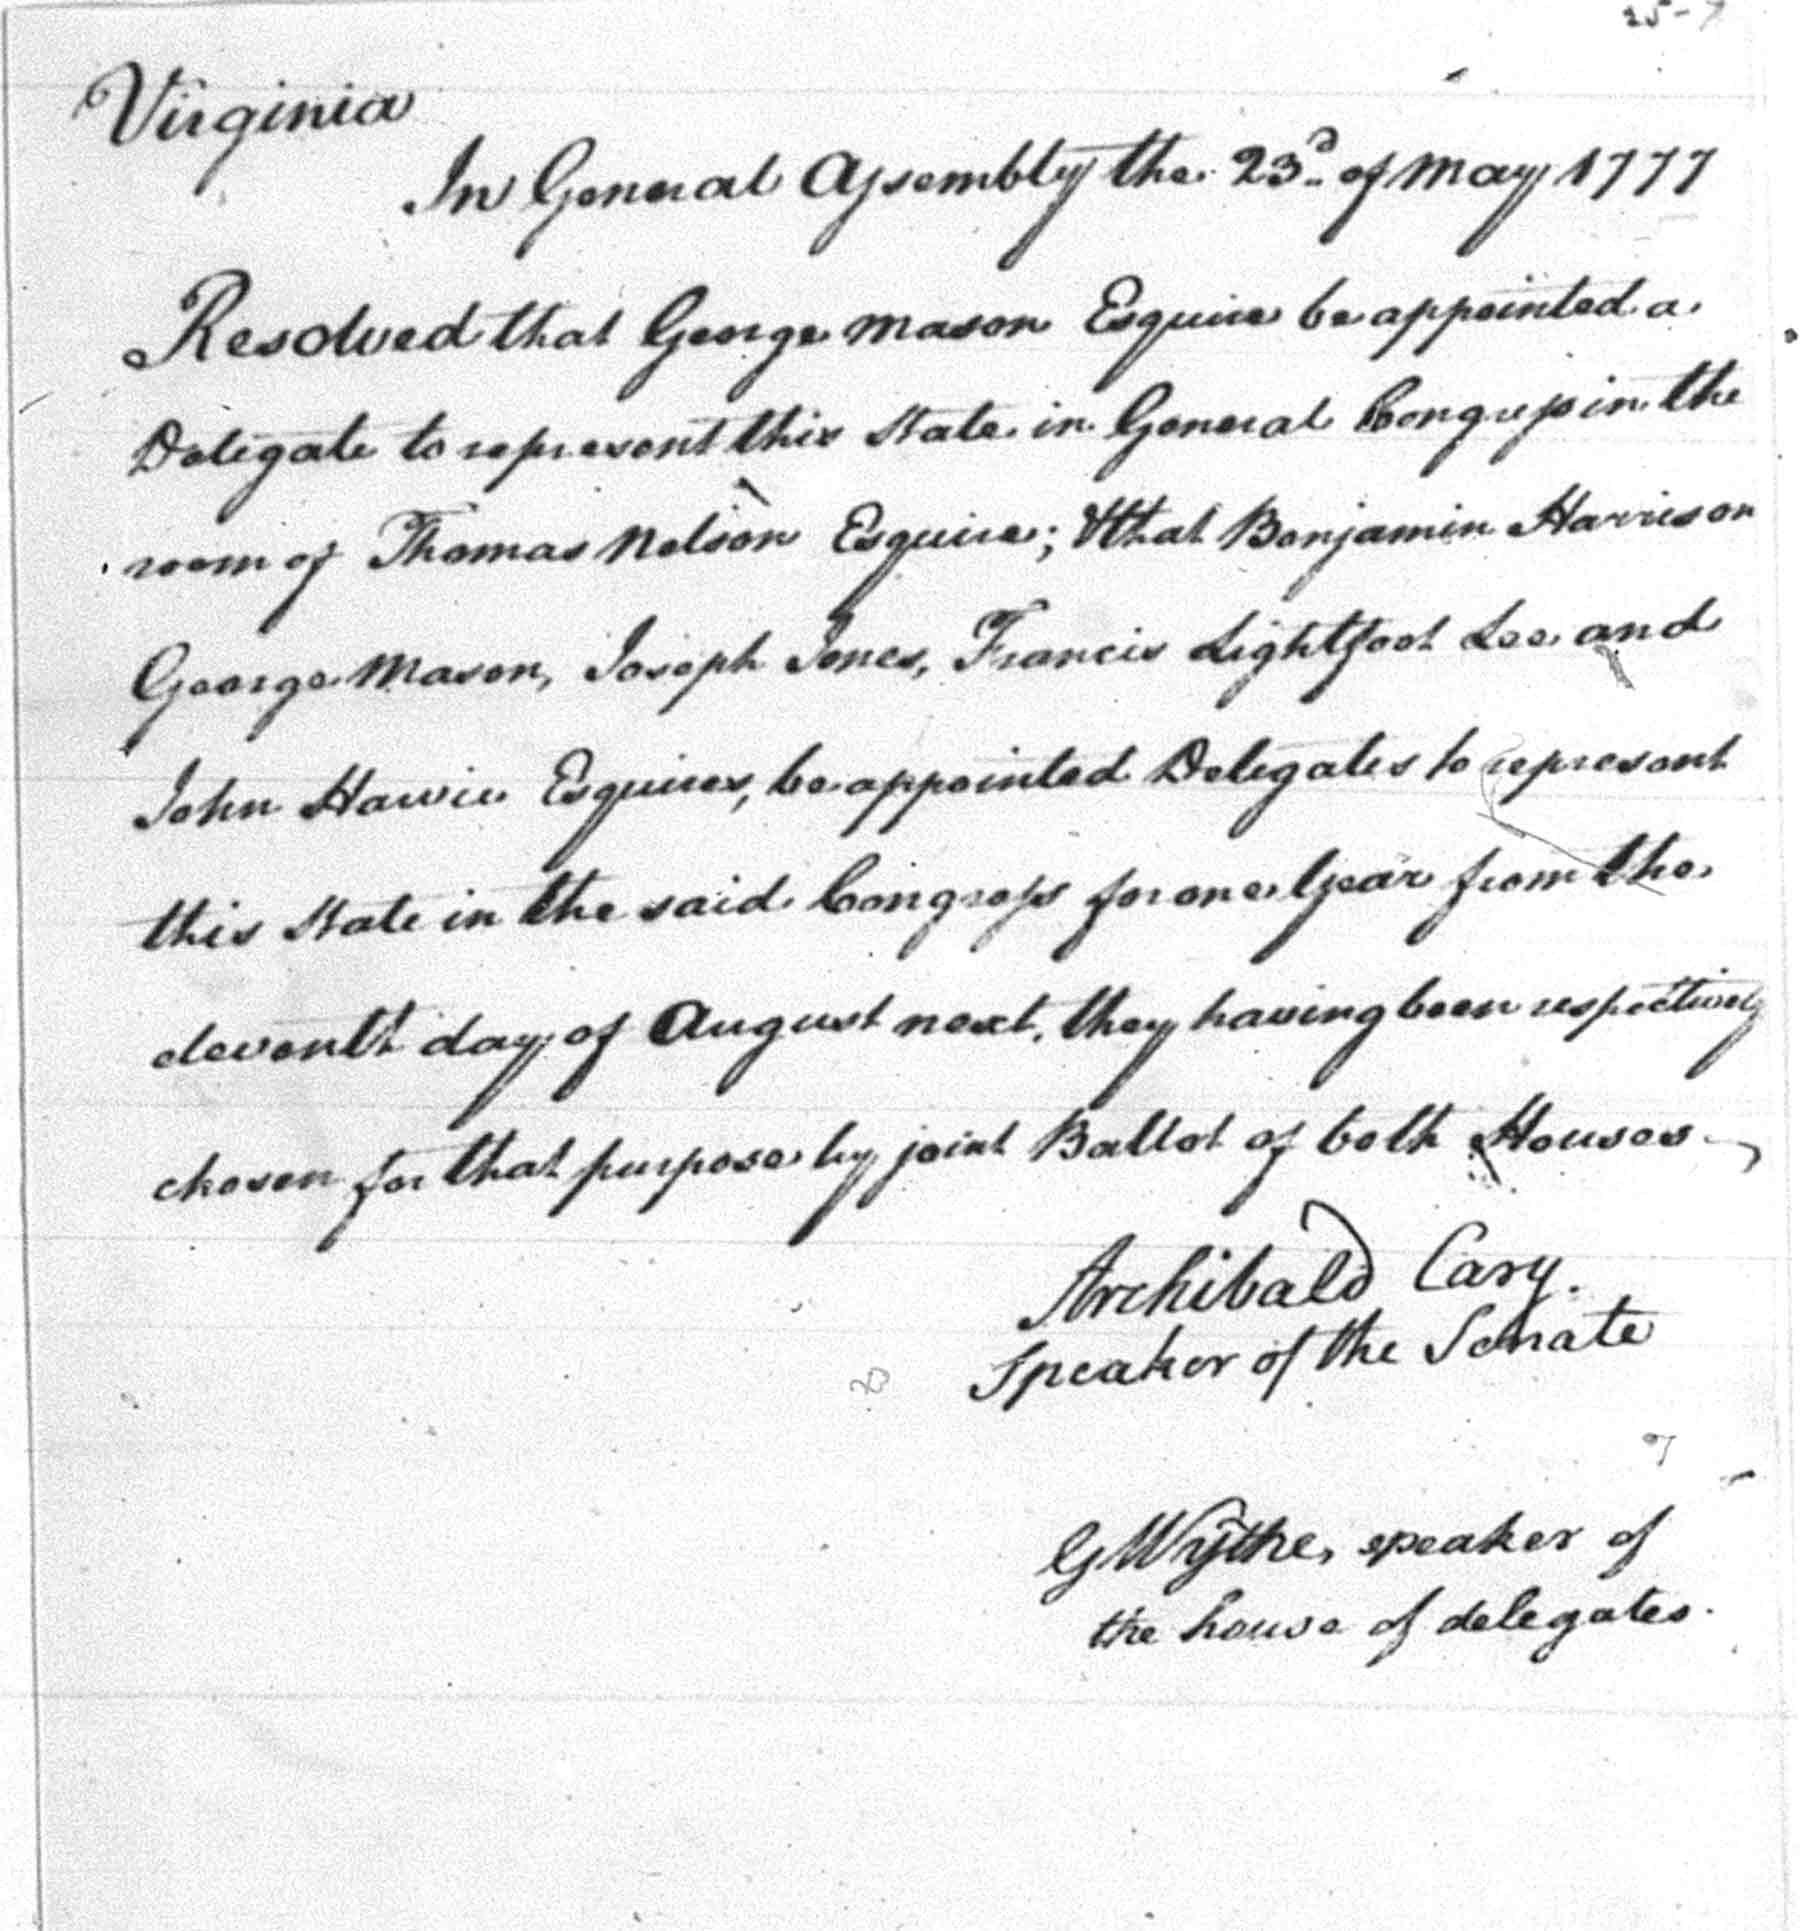 Virginia
In General Assembly the 23d of May 1777
Resolved that George Mason Esquire be appointed a
Delegate to represent this State in General Congress in the
room of Thomas Nelson Esquire; & that Benjamin Harrison
George Mason, Joseph Jones, Francis Lightfoot Lee and
John Harvie Esquires, be appointed Delegates to represent
this State in the said Congress for one Year from the
eleventh day of August next, they having been respectively
chosen for that purpose by joint Ballot of both Houses
Archibald Cary.
Speaker of the Senate
G Wythe, speaker of
the house of delegates.